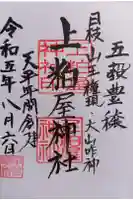 五穀豊穣
日枝
山王権現
大山咋神
上粕屋神社
天平年間創建
令和五年八月六日